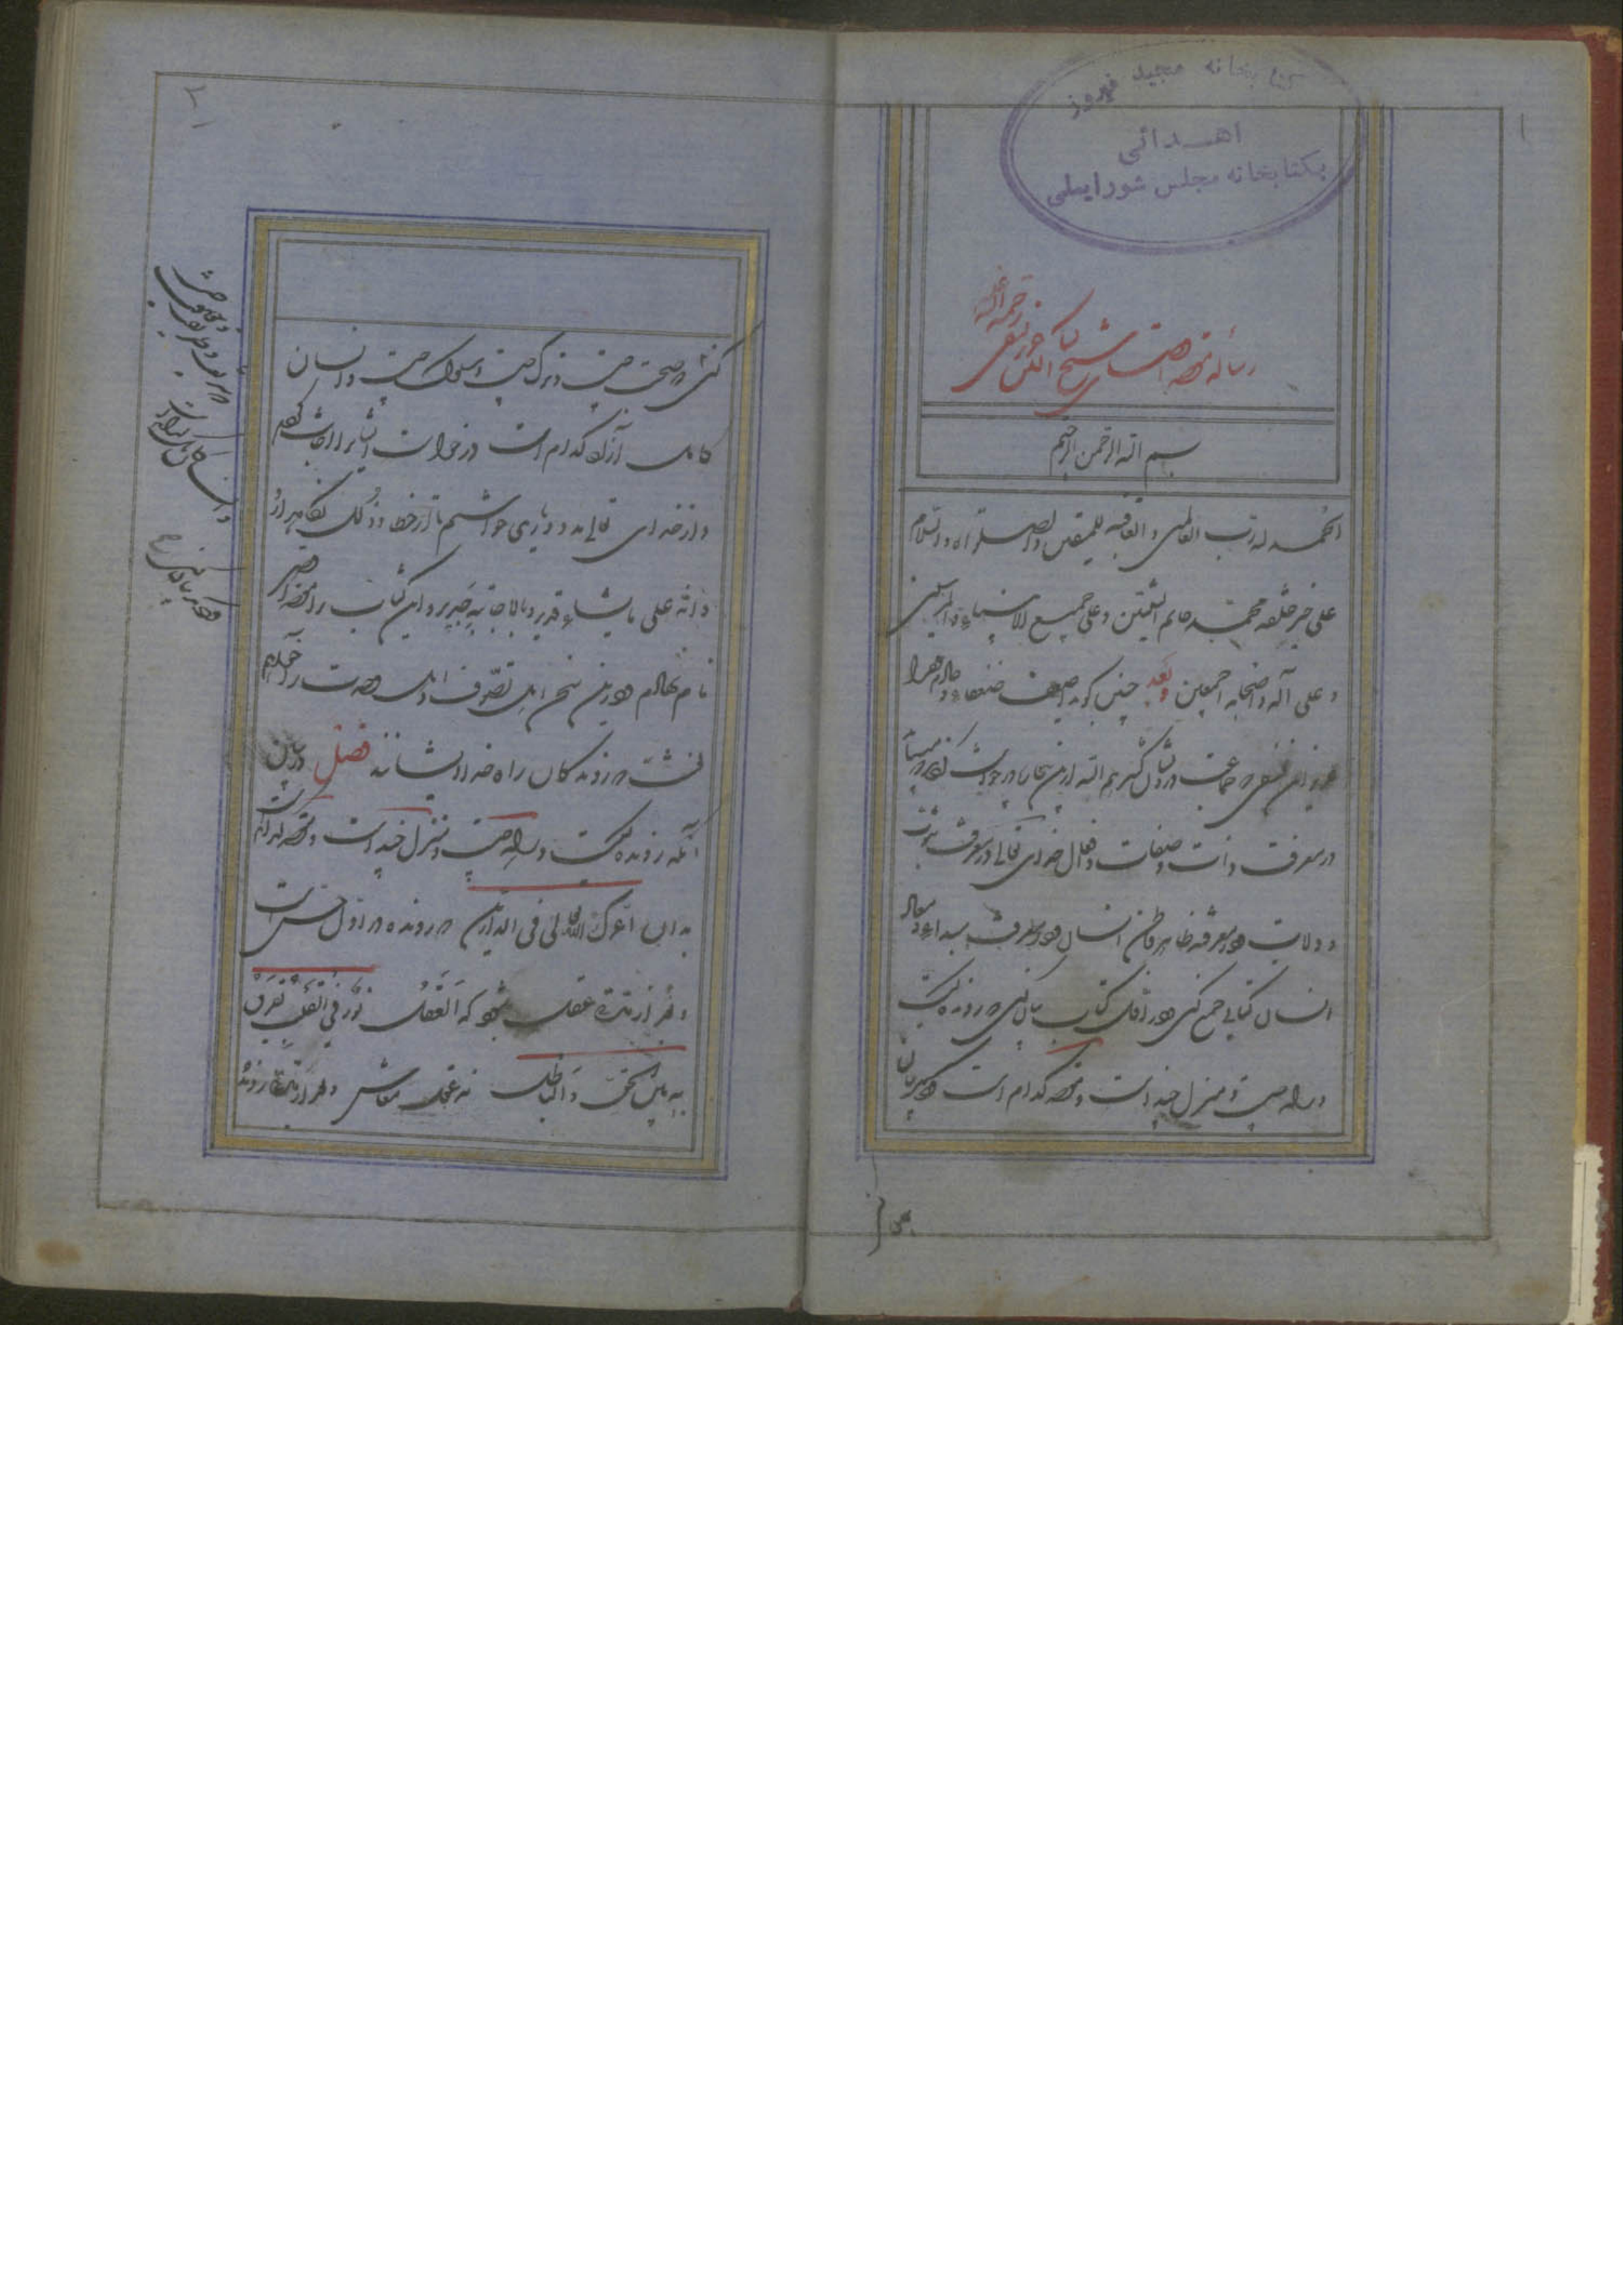 ۱
کتابخانه مجید فیروز
اهدائی
بکتابخانه مجلس شورایملی
رساله مقصد اقصای شیخ
رحمة الله علیه
بسم الله الرحمن الرحیم
الحمد لله رب العالمین والعاقبة للمتقین والصلوة والسلام
علی خیر خلقه محمد خاتم النبیین وعلی جمیع الانبیاء والمرسلین
وعلی آله واصحابه اجمعین وبعد چنین گوید اضعف ضعفاء وخادم فقرا
عزیز ابن نسفی که جماعت درویشان کثرهم الله ازین بیچاره درخواست کردند که میباید
در معرفت ذات وصفات وافعال خدای تعالی ودر معرفت نبوت
وولایت ودر معرفت ظاهر وباطن انسان ودر معرفت مبداء ومعاد
انسان کتابی جمع کنی ودر اول کتاب بیان کنی که رونده کیست
وراه چیست ومنزل چند است ومقصد کدام است ودیگر بیان
۲
کنی که صحبت چیست وترک چیست وسلوک چیست وانسان
کامل آزاد کدام است درخواست ایشان را اجابت کردم
واز خدای تعالی مدد ویاری خواستم تا از خطا وزلل نگاهدارد
وانه علی مایشاء قدیر وبالاجابة جدیر واین کتاب را مقصد اقصی
نام نهادم ودرین سخن اهل تصوف واهل وحدت را خواهم
نبشت که روندگان راه خدا ایشانند فصل در بیان
آنکه رونده کیست وراه چیست ومنزل چند است ومقصد کدام است
بدان اعزک الله تعالی فی الدارین که رونده در اول حس است
وبعد از مدتی عقل میشود که العقل نور فی القلب یفرق
به بین الحق والباطل نه عقل معاش وبعد از مدتی رونده